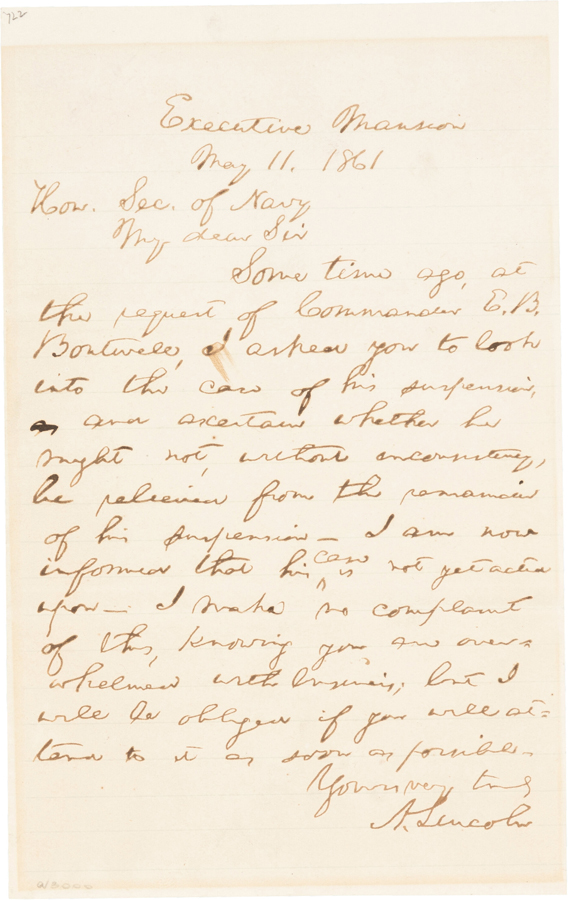 722
Executive Mansion
May 11. 1861
Hon. Sec. of Navy
My dear Sir
Some time ago, at
the request of Commander E. B.
Boutwell, I asked you to look
into the case of his suspension,
and ascertain whether he
might not, without inconsistency,
be relieved from the remainder
of his suspension — I am now
informed that his case is not yet acted
upon — I make no complaint
of this, knowing you are over=
whelmed with business; but I
will be obliged if you will at=
tend to it as soon as possible.
Yours very truly
A. Lincoln